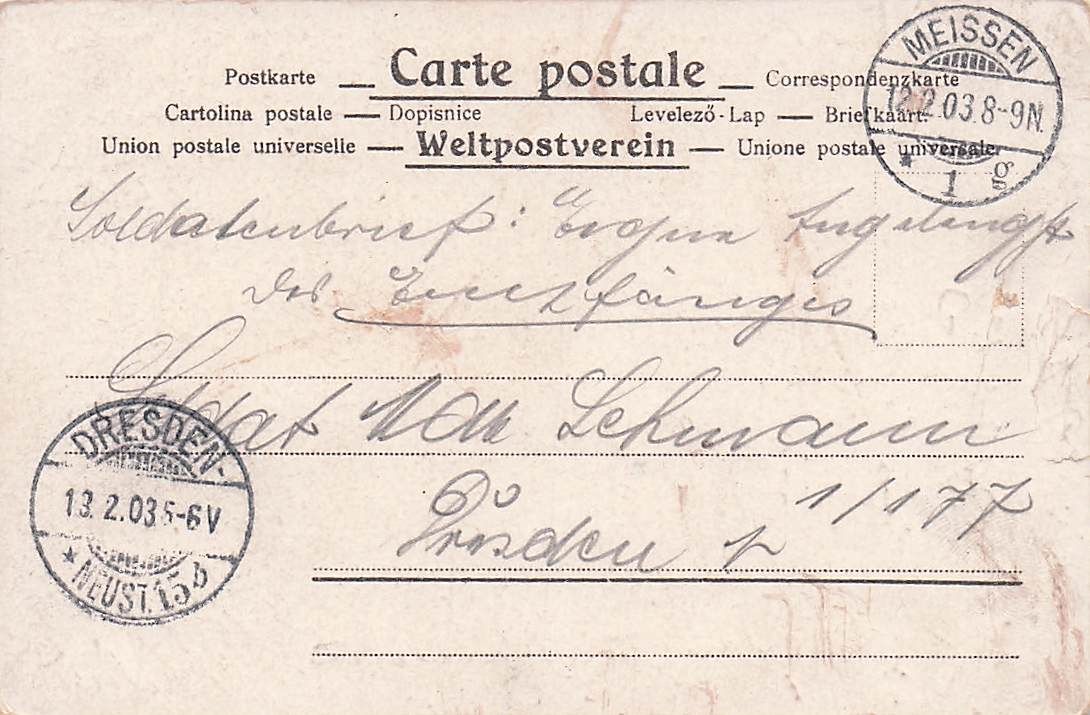 Postkarte — Carte postale — Correspondenzkarte
Cartolina postale — Dopisnice Levelező-Lap — Briefkaart.
Union postale universelle — Weltpostverein — Unione postale universale.
MEISSEN
12.2.03.8-9N.
* 1 g
Soldatenbrief: Eigene Angelenght
des Empfängers
Soldat Lehmann
1/177
Dresden
DRESDEN-
13.2.03 5-6V
* NEUST. 15 b